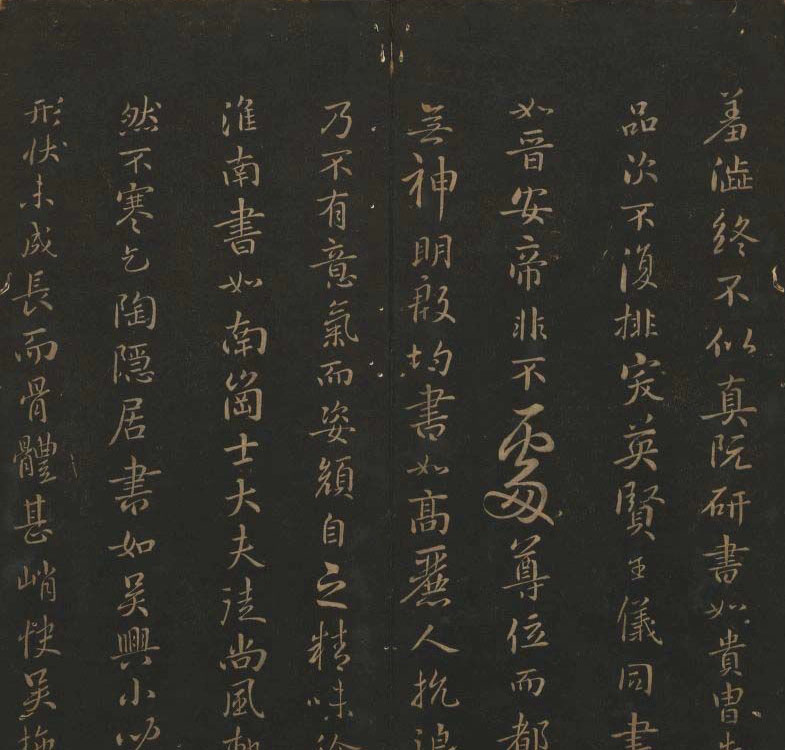 羞澁終不似真阮研書如貴冑
品次不復排突英賢王儀同書
如晉安帝非不處尊位而都
無神明殷均書如高麗人抗浪
乃不有意氣而姿顏自之精味
淮南書如南崗士大夫徒尚風
然不寒乞陶隱居書如吳興小
形狀未成長而骨體甚峭快吳施